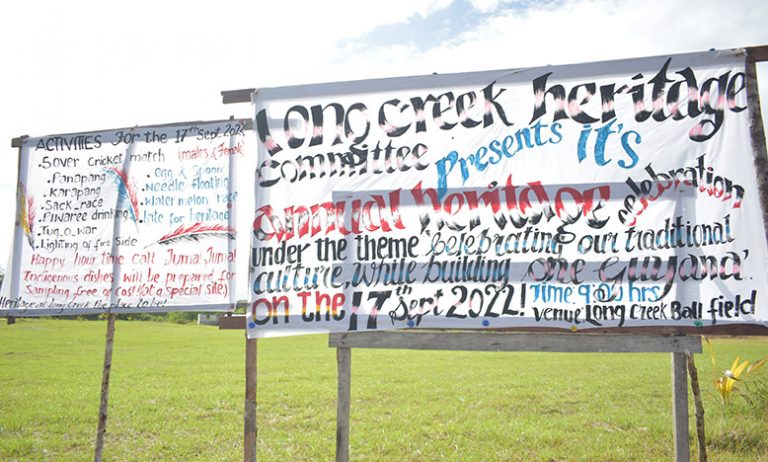 ACTIVITIES For the 17th Sept. 202
• 5 over cricket match (males & Female)
• Panapang
• Karapang
• Sack race
• Piwaree drinking
• Tug-o-war
• Lighting of fire side
• egg & Spoon
• Needle floating
• Water melon race
• late for heritage
Happy hour time call Juma! Juma!
Indigenous dishes will be prepared for
Sampling free of cost! (at a special site)
Heritage at Long Creek the place to be!
Long Creek heritage
committee Presents it's
annual heritage celebration
under the theme 'celebrating our traditional
culture, while building one Guyana'.
on the 17th Sept 2022! Time 9:00 hrs
venue Long Creek Ball field